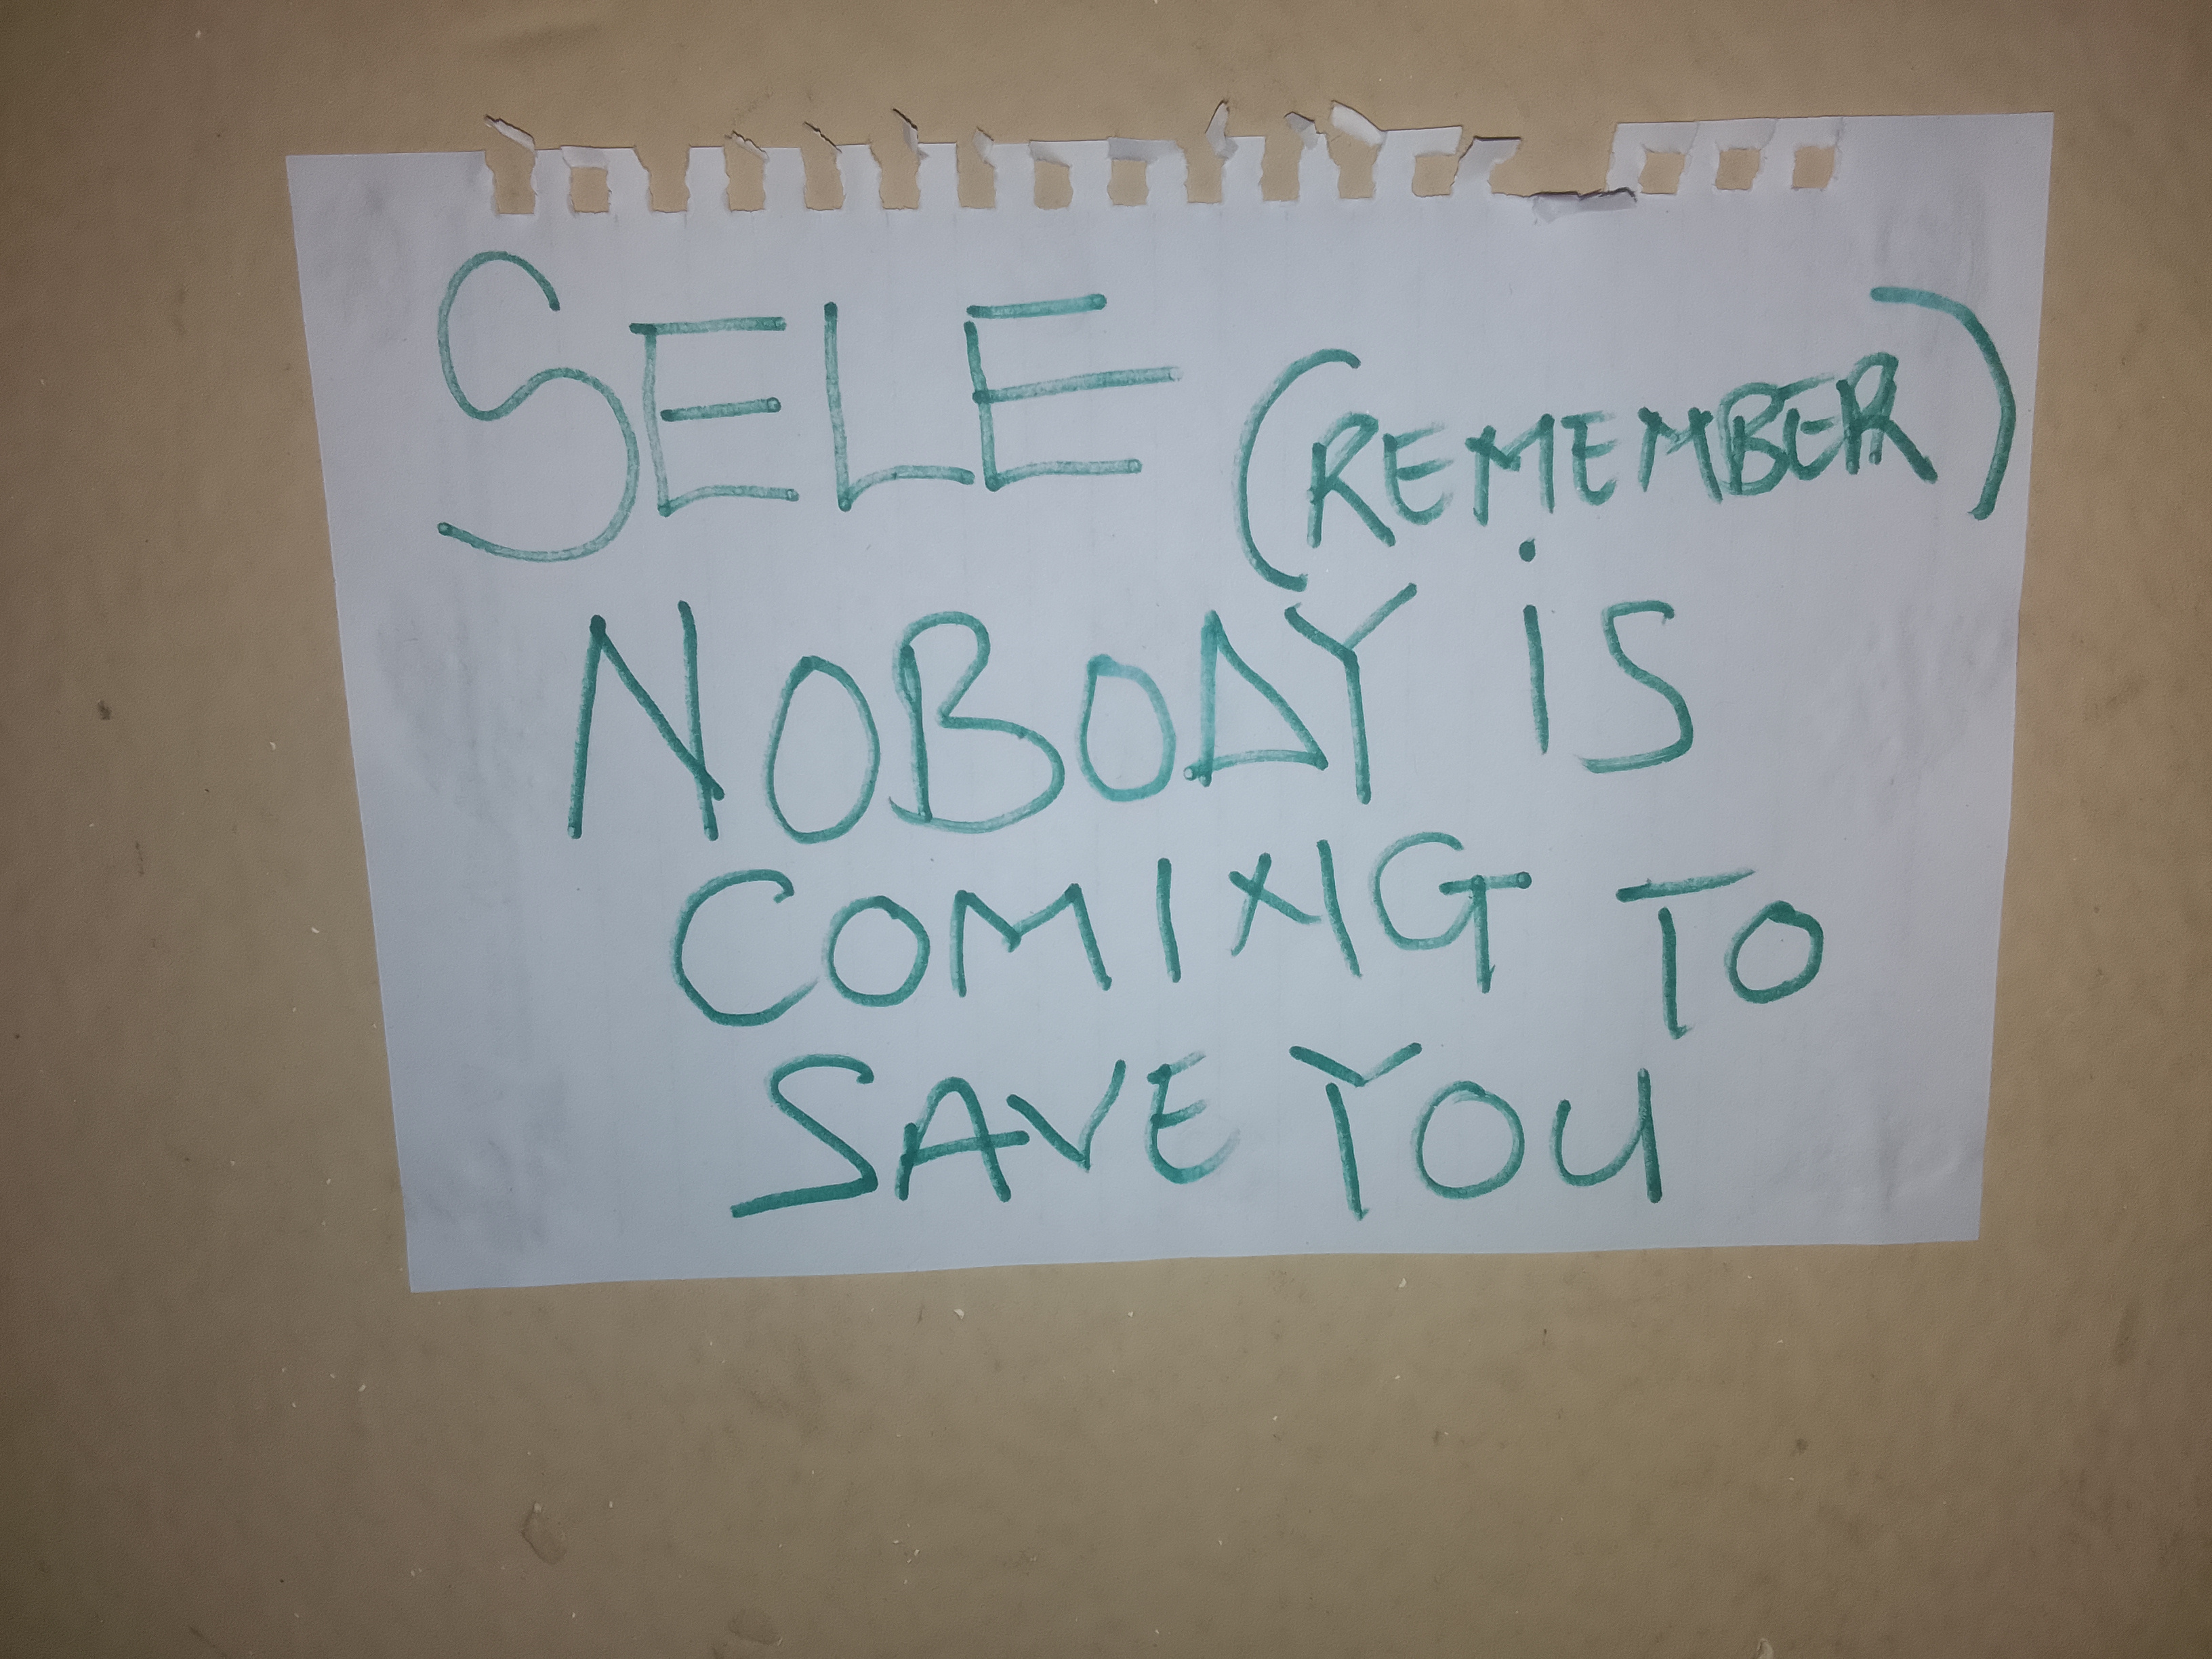 SELE (REMEMBER)
NOBODY iS
COMING TO
SAVE YOU